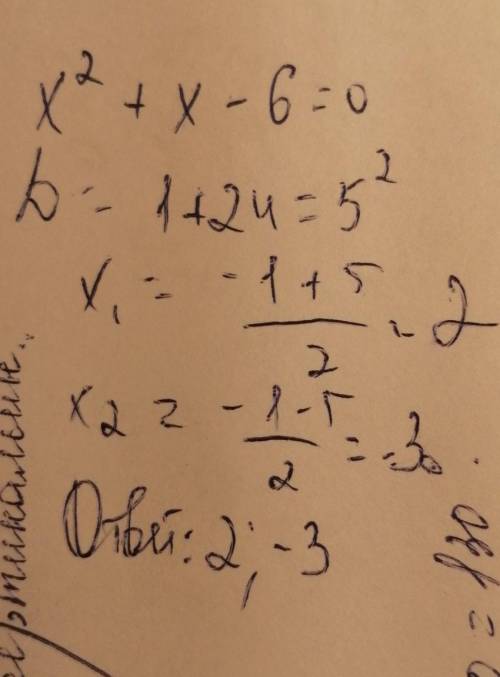 x² + x - 6 = 0
D = 1+24 = 5²
x₁ = (-1+5)/2 = 2
x₂ = (-1-5)/2 = -3.
Ответ: 2; -3
= 130